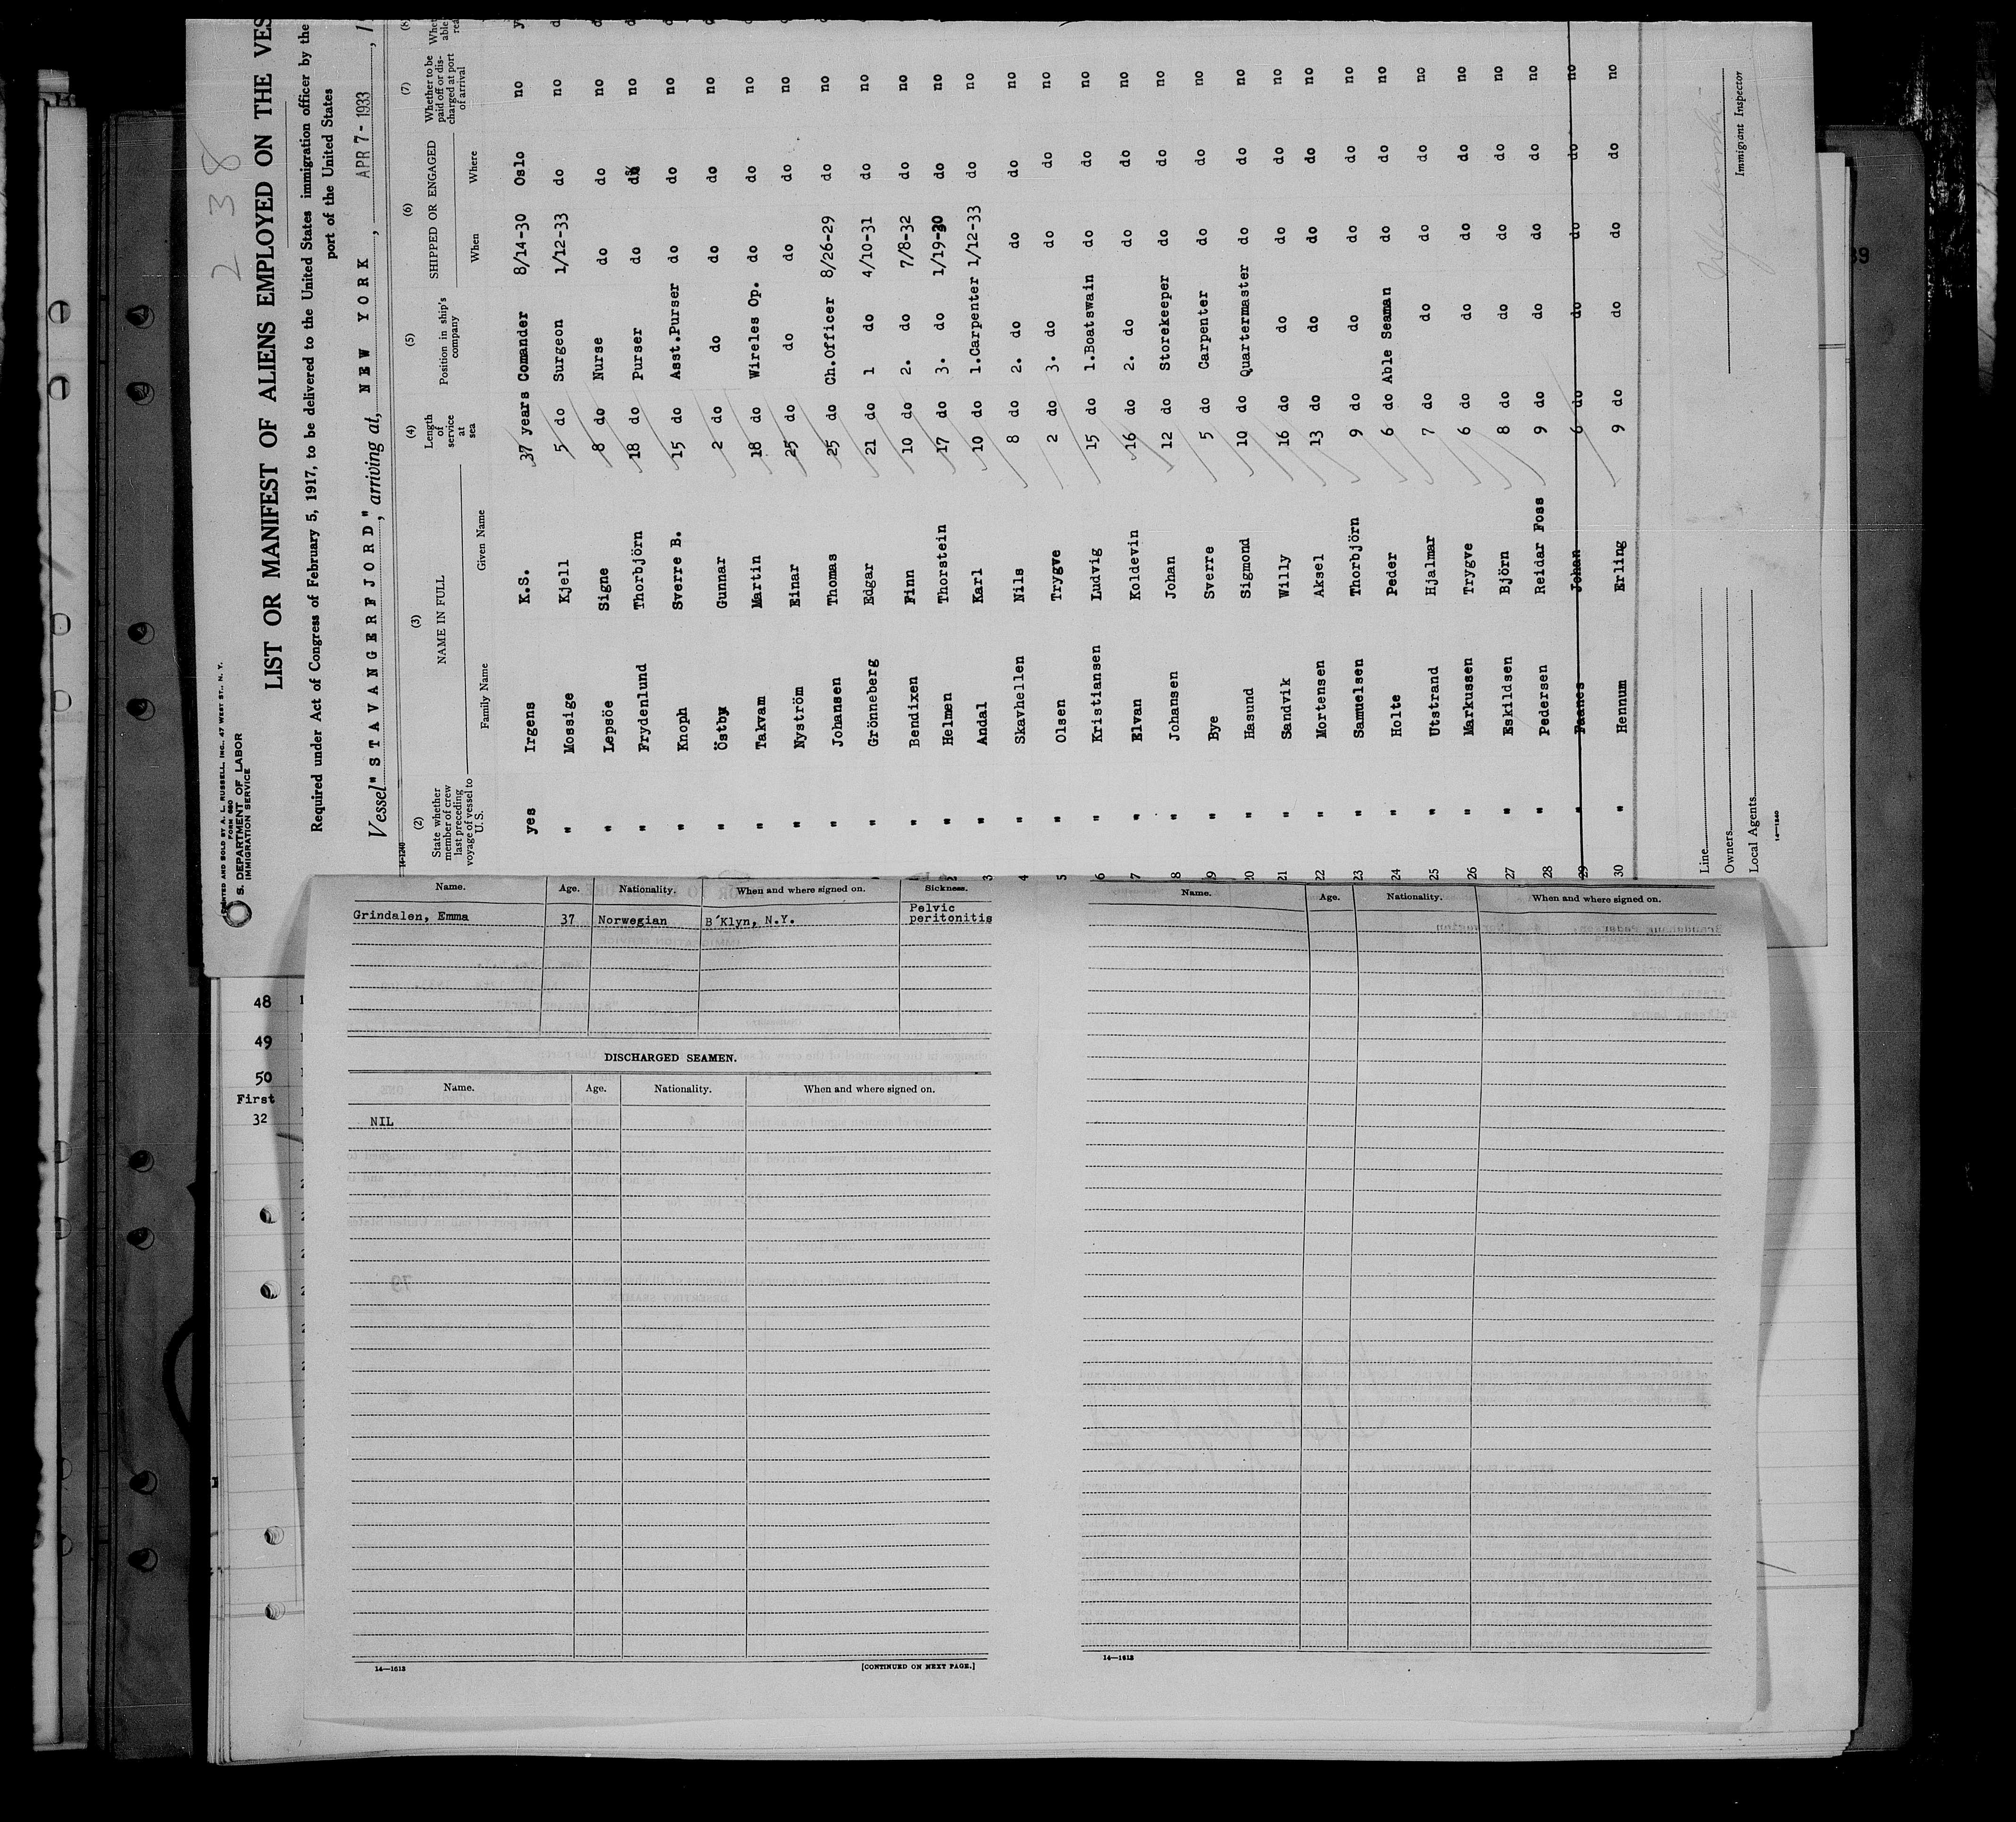 2 38
PRINTED AND SOLD BY A. L. RUSSELL, INC., 47 WEST ST., N. Y.
S. DEPARTMENT OF LABOR
IMMIGRATION SERVICE
LIST OR MANIFEST OF ALIENS EMPLOYED ON THE VES
Required under Act of Congress of February 5, 1917, to be delivered to the United States immigration officer by the
port of the United States
Vessel "STAVANGERFJORD", arriving at, NEW YORK, APR 7- 1933, 1
14-1240
(2) (3) (4) (5) (6) (7) (8)
State whether member of crew last preceding voyage of vessel to U. S. NAME IN FULL Family Name Given Name Length of service at sea Position in ship's company SHIPPED OR ENGAGED When Where Whether to be paid off or discharged at port of arrival
yes Irgens K.S. 37 years Comander 8/14-30 Oslo no
" Mossige Kjell 5 do Surgeon 1/12-33 do no
" Lepsöe Signe 8 do Nurse do do no
" Frydenlund Thorbjörn 18 do Purser do do no
" Knoph Sverre B. 15 do Asst.Purser do do no
" Östby Gunnar 2 do do do do no
" Takvam Martin 18 do Wireles Op. do do no
" Nyström Einar 25 do do do do no
" Johansen Thomas 25 do Ch.Officer 8/26-29 do no
" Grönneberg Edgar 21 do 1 do 4/10-31 do no
" Bendixen Finn 10 do 2. do 7/8-32 do no
" Helmen Thorstein 17 do 3. do 1/19-30 do no
3 " Andal Karl 10 do 1.Carpenter 1/12-33 do no
4 " Skavhellen Nils 8 do 2. do do do no
5 " Olsen Trygve 2 do 3. do do do no
6 " Kristiansen Ludvig 15 do 1.Boatswain do do no
7 " Elvan Koldevin 16 do 2. do do do no
8 " Johansen Johan 12 do Storekeeper do do no
19 " Bye Sverre 5 do Carpenter do do no
20 " Hasund Sigmond 10 do Quartermaster do do no
21 " Sandvik Willy 16 do do do do no
22 " Mortensen Aksel 13 do do do do no
23 " Samuelsen Thorbjörn 9 do do do do no
24 " Holte Peder 6 do Able Seaman do do no
25 " Utstrand Hjalmar 7 do do do do no
26 " Markussen Trygve 6 do do do do no
27 " Eskildsen Björn 8 do do do do no
28 " Pedersen Reidar Foss 9 do do do do no
29 " Faanes Johan 6 do do do do no
30 " Hennum Erling 9 do do do do no
Line
Owners
Local Agents
Immigrant Inspector
14-1240
39
48
49
50
First
32
Name. Age. Nationality. When and where signed on. Sickness.
Grindalen, Emma 37 Norwegian B'Klyn, N.Y. Pelvic peritonitis
DISCHARGED SEAMEN.
Name. Age. Nationality. When and where signed on.
NIL
14—1613 [CONTINUED ON NEXT PAGE.]
Name. Age. Nationality. When and where signed on.
14—1613